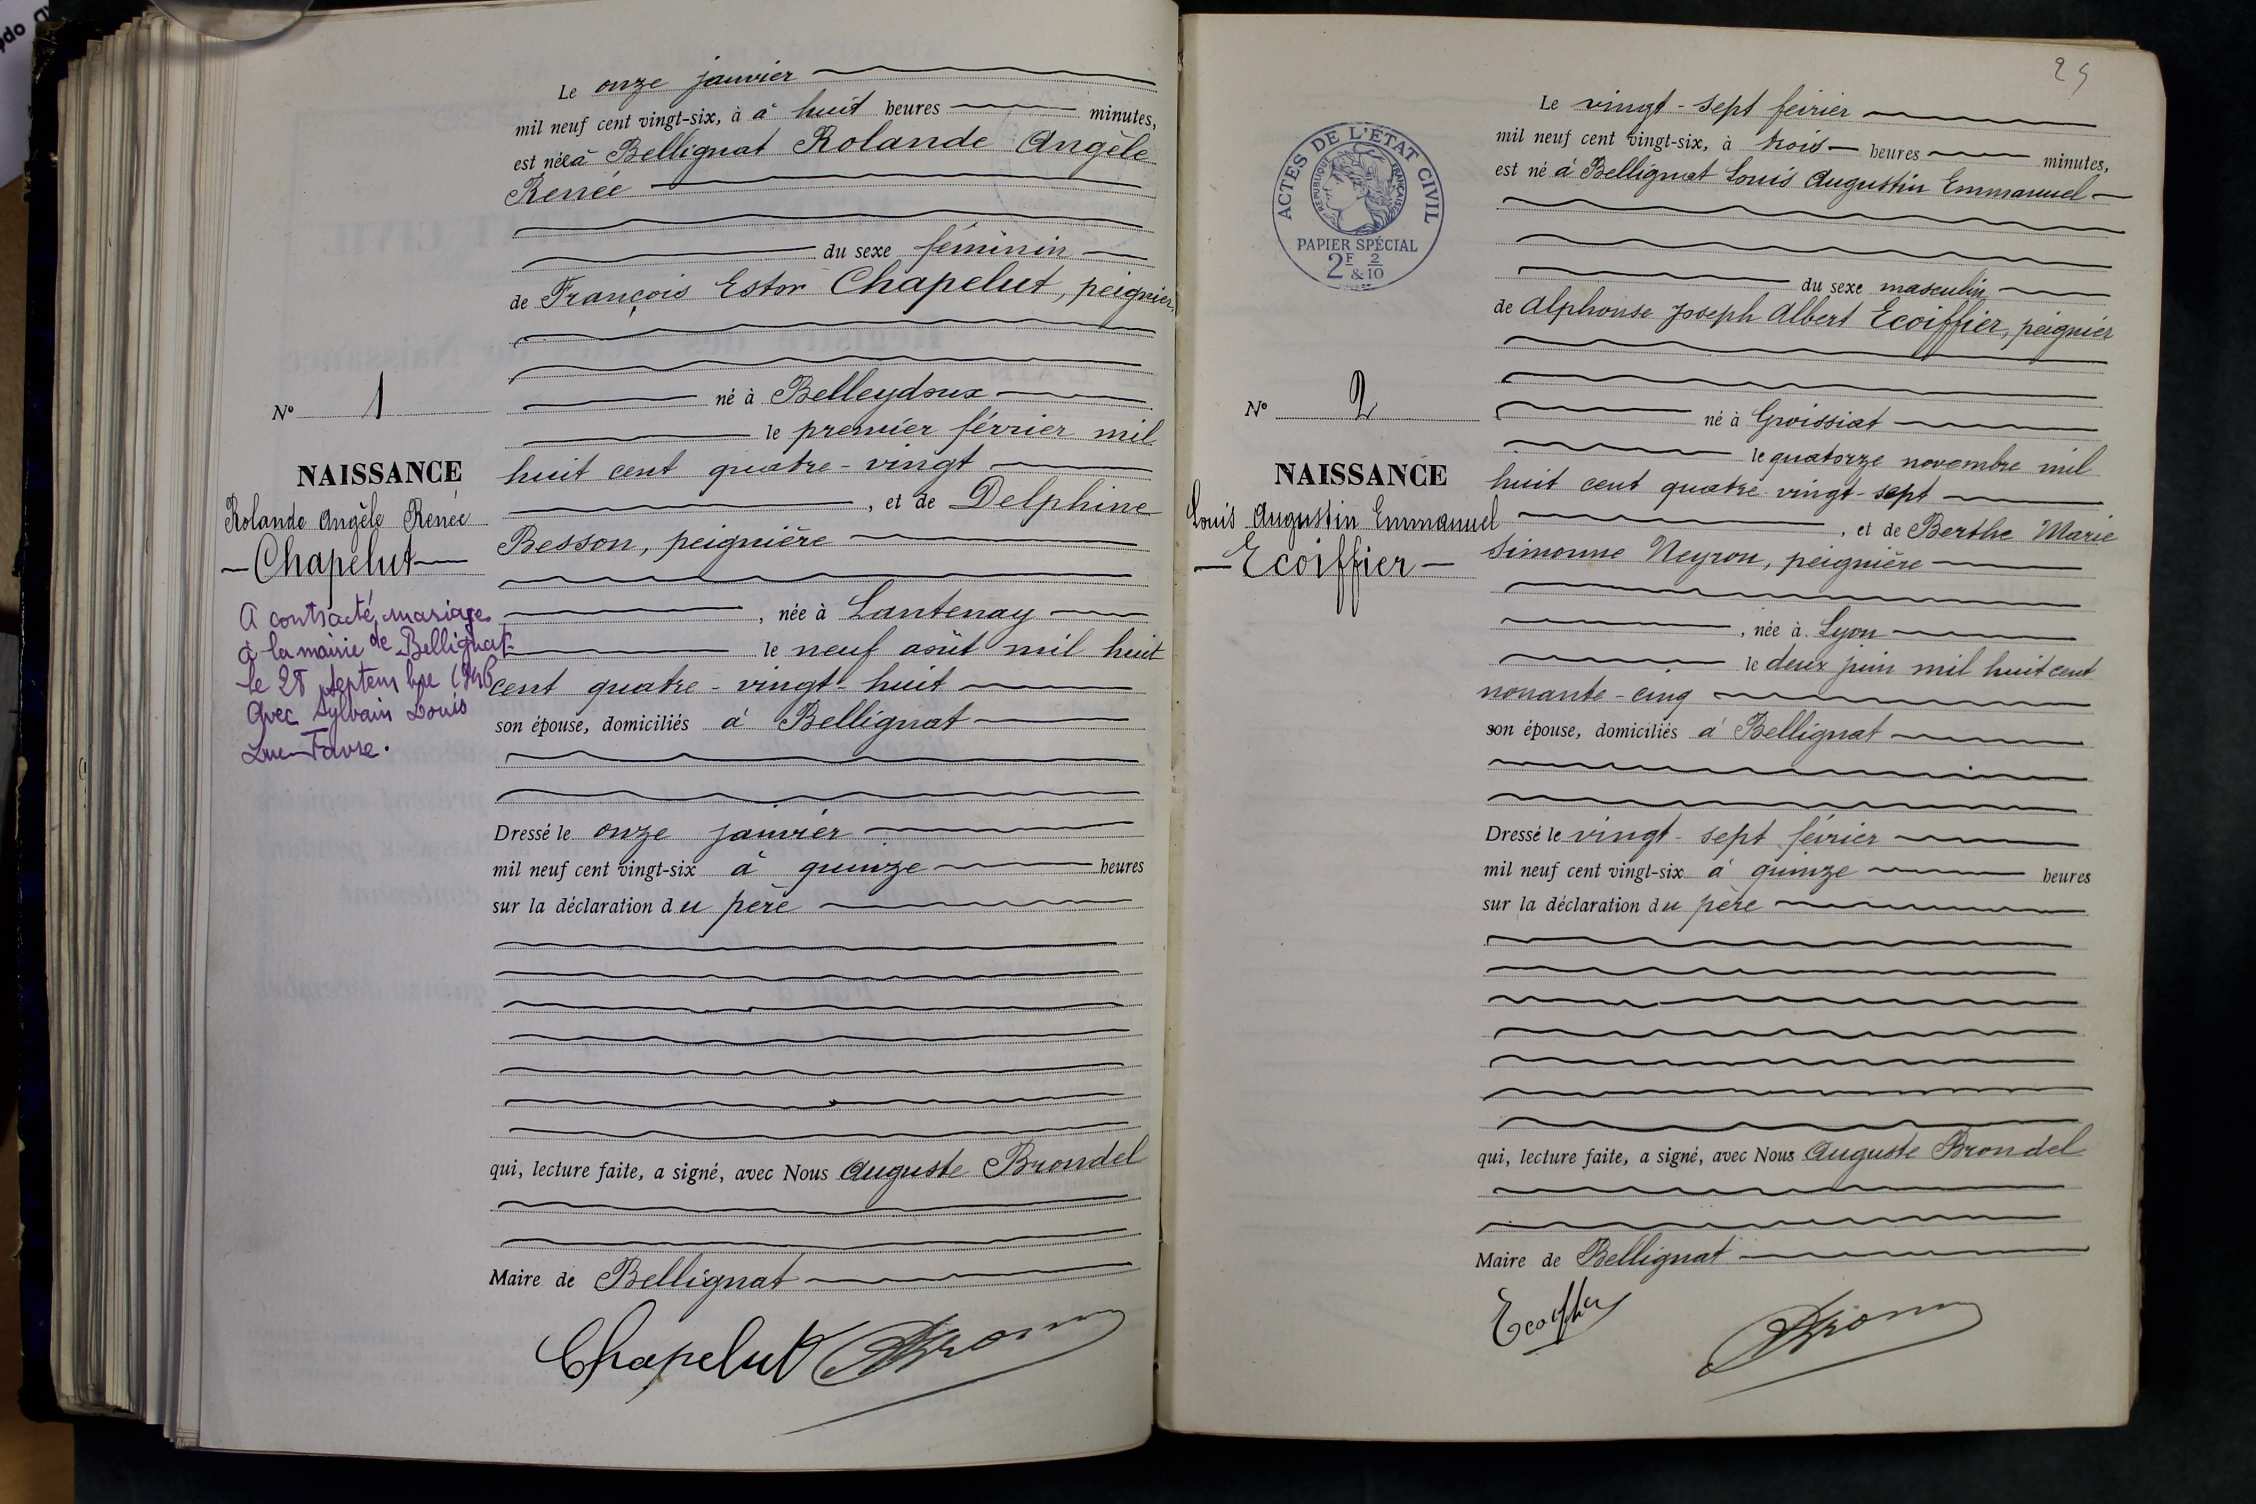 Le onze janvier
mil neuf cent vingt-six, à à huit heures minutes,
est née à Bellignat Rolande Angèle
Renée
du sexe féminin
de François Estor Chapelut, peignier,
né à Belleydoux
le premier février mil
huit cent quatre-vingt
, et de Delphine
Besson, peignière
, née à Lantenay
le neuf août mil huit
cent quatre-vingt-huit
son épouse, domiciliés à Bellignat
Dressé le onze janvier
mil neuf cent vingt-six à quinze heures
sur la déclaration du père
qui, lecture faite, a signé, avec Nous Auguste Brondel
Maire de Bellignat
Chapelut
No 1
NAISSANCE
Rolande Angèle Renée
Chapelut
A contracté mariage
à la mairie de Bellignat
le 28 septembre 1946
avec Sylvain Louis
Luc Favre.
ACTES DE L'ETAT CIVIL
REPUBLIQUE FRANÇAISE
PAPIER SPÉCIAL
2F & 2/10
Le vingt-sept février
mil neuf cent vingt-six, à trois heures minutes,
est né à Bellignat Louis Augustin Emmanuel
du sexe masculin
de Alphonse Joseph Albert Ecoiffier, peignier
né à Groissiat
le quatorze novembre mil
huit cent quatre vingt-sept
, et de Berthe Marie
Simonne Neyron, peignière
, née à Lyon
le deux juin mil huit cent
nonante-cinq
son épouse, domiciliés à Bellignat
Dressé le vingt-sept février
mil neuf cent vingt-six à quinze heures
sur la déclaration du père
qui, lecture faite, a signé, avec Nous Auguste Brondel
Maire de Bellignat
Ecoiffier
No 2
NAISSANCE
Louis Augustin Emmanuel
Ecoiffier